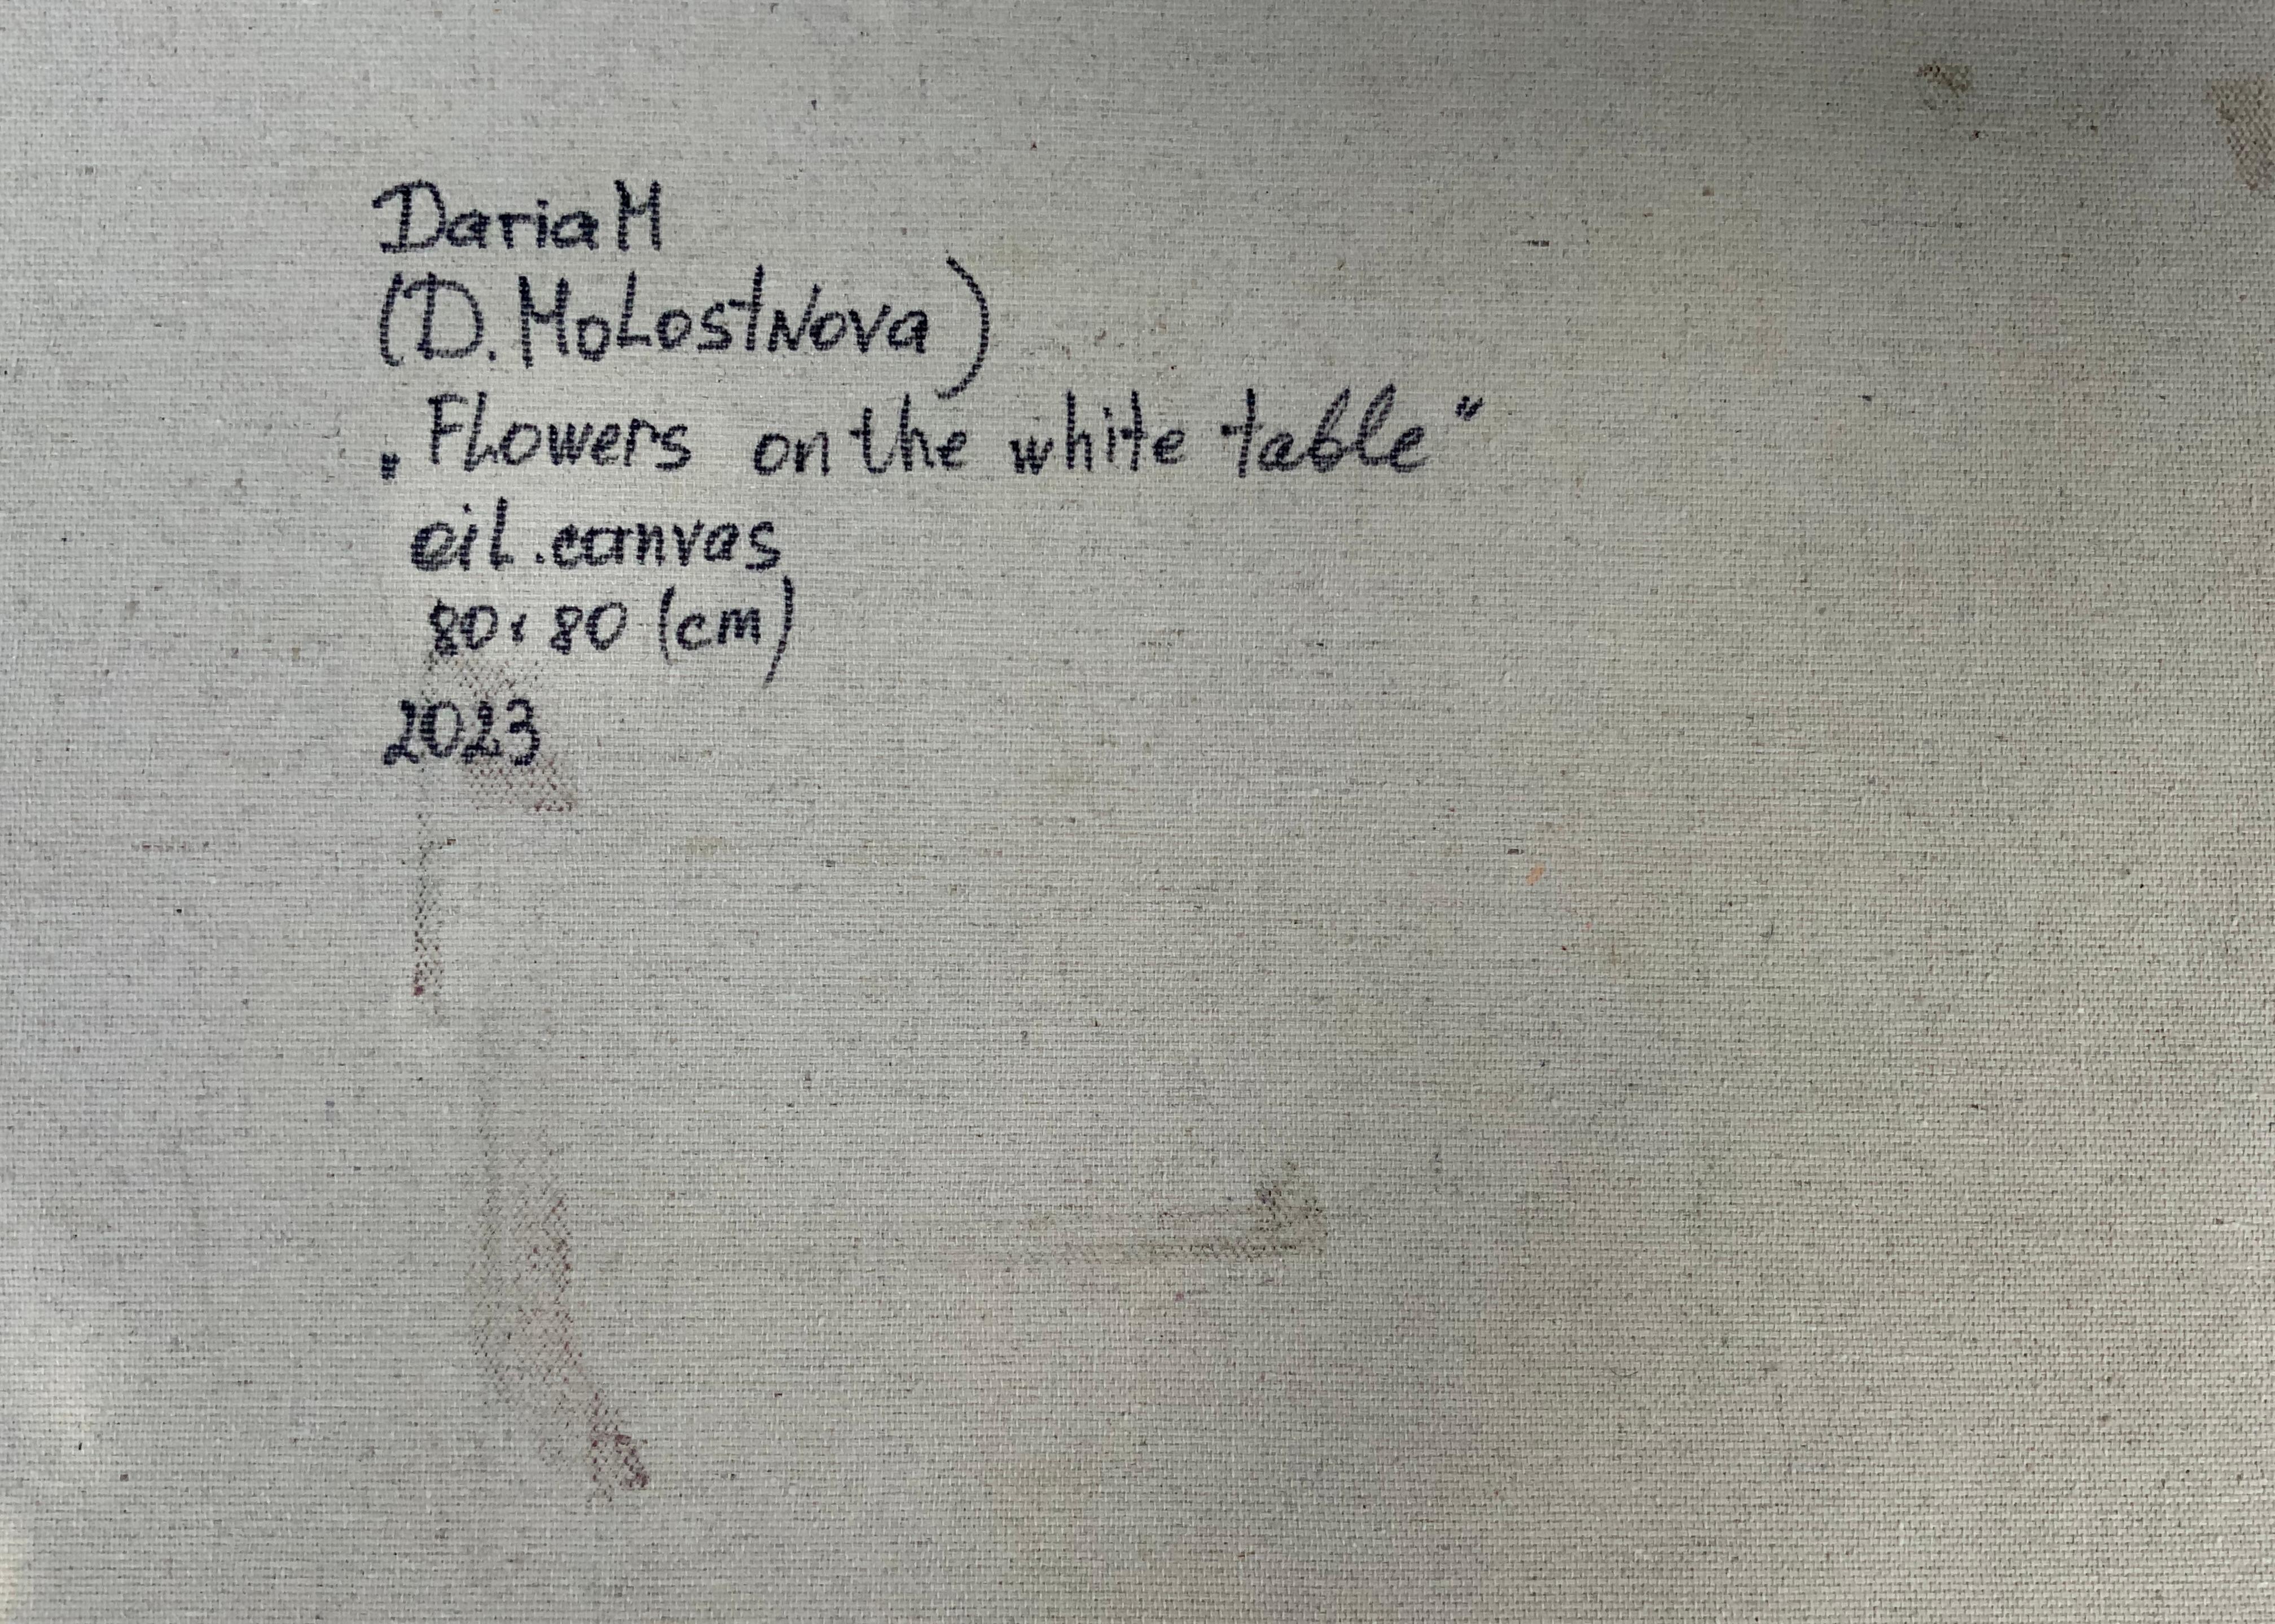 DariaM
(D. MoLostNova)
„FLowers on the white table“
oiL. canvas
80x80 (cm)
2023